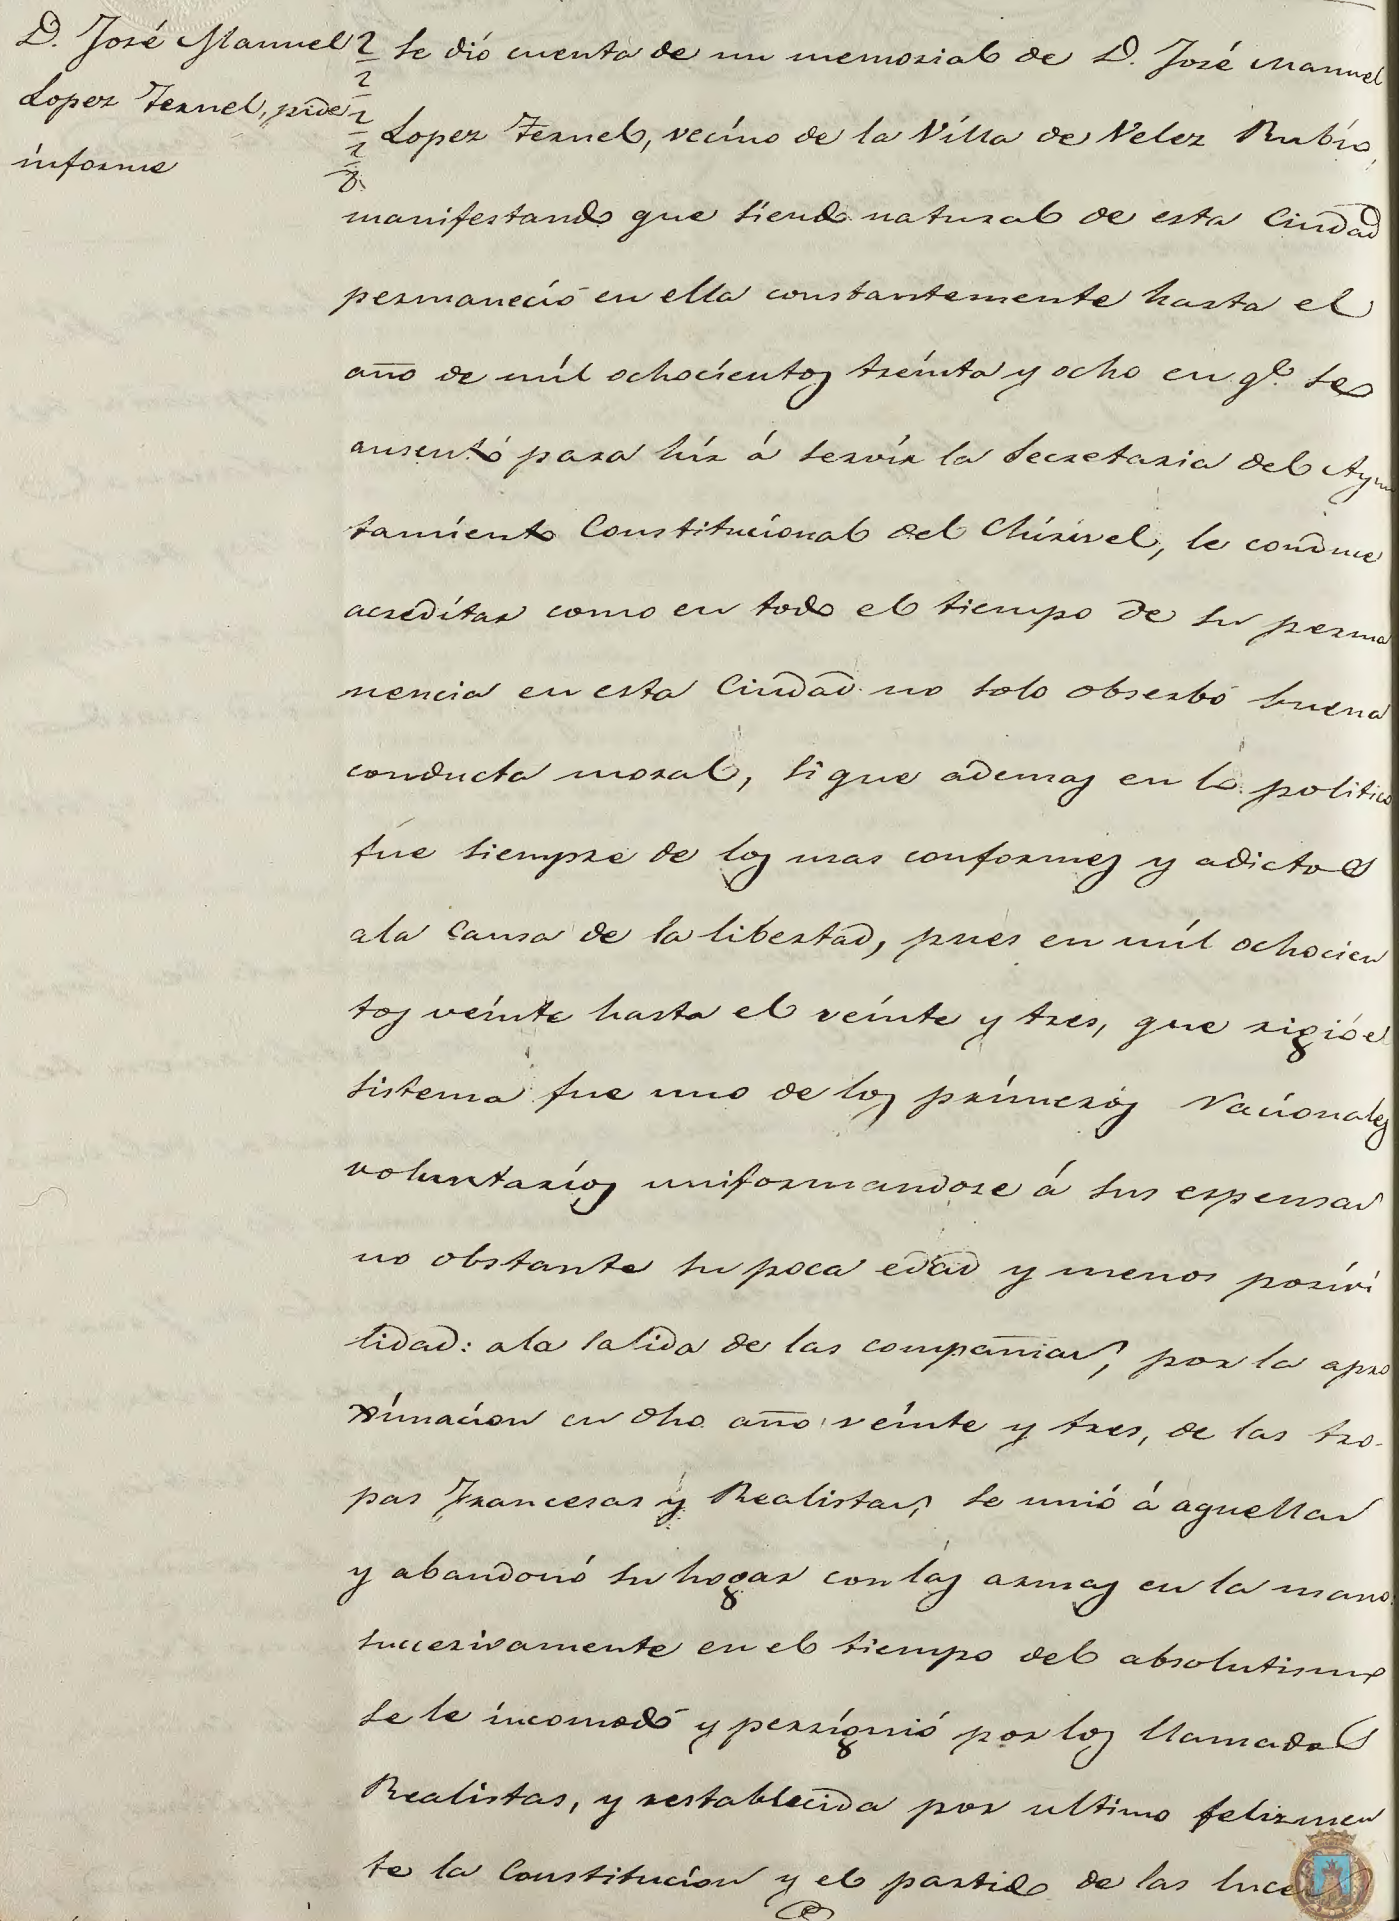 D. José Manuel
Lopez Teruel, pide
informe
Se dió cuenta de un memorial de D. José Manuel
Lopez Teruel, vecino de la Villa de Velez Rubio,
manifestando que siendo natural de esta Ciudad
permaneció en ella constantemente hasta el
año de mil ochocientos treinta y ocho en qe. se
ausentó para hir á servir la Secretaria del Ayun
tamiento Constitucional del Chirivel, le conduce
acreditar como en todo el tiempo de su perma
nencia en esta Ciudad no solo observó buena
conducta moral, si que ademas en lo politico
fue siempre de los mas conformes y adictos
ala Causa de la libertad, pues en mil ochocien
tos veinte hasta el veinte y tres, que rigió el
sistema fue uno de los primeros Nacionales
voluntarios uniformandose á sus espensas
no obstante su poca edad y menos posivi
lidad: ala salida de las compañias, por la apro
ximacion en dho año veinte y tres, de las tro-
pas Francesas y Realistas, se unió á aquellas
y abandonó su hogar con las armas en la mano:
succesivamente en el tiempo del absolutismo
se le incomodó y persiguió por los llamados
Realistas, y restablecida por ultimo felizmen
te la Constitucion y el partido de las luces